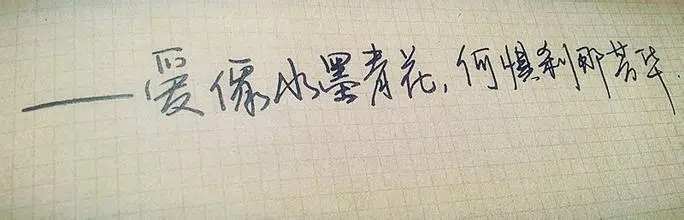 ——爱像水墨青花,何惧刹那芳华.